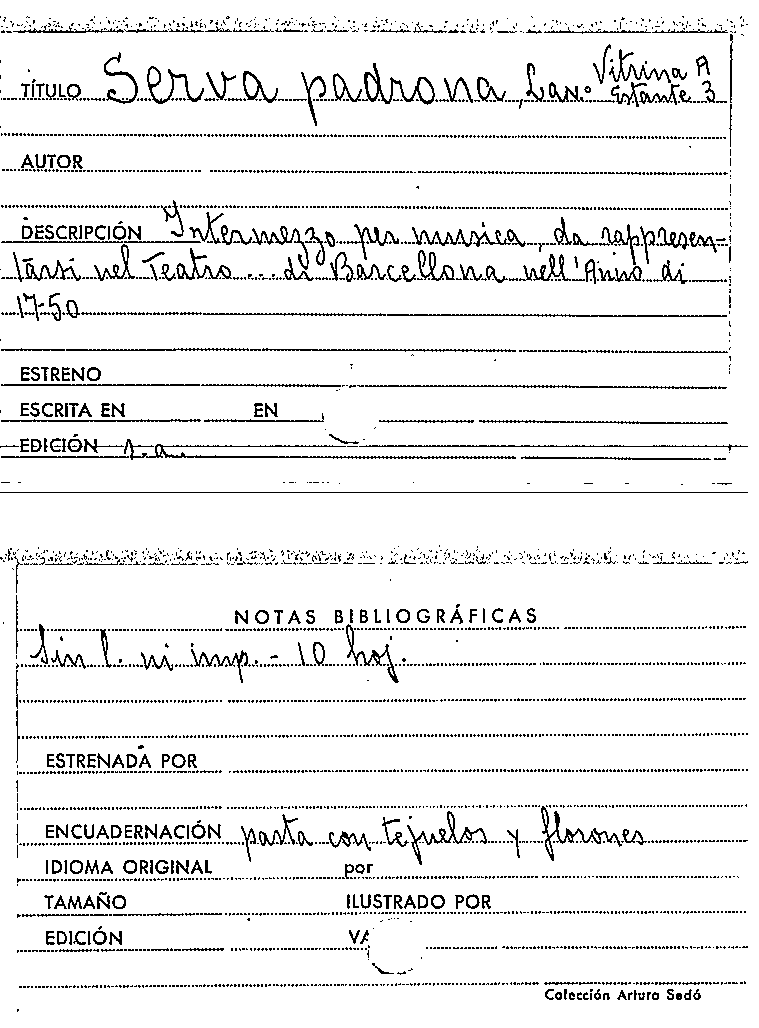 Vitrina A
TÍTULO Serva padrona, La Estante 3
AUTOR
DESCRIPCIÓN Intermezzo per musica, da rappresen-
tarsi nel Teatro ... di Barcellona nell'Anno di
1750
ESTRENO
ESCRITA EN EN
EDICIÓN s.a.
NOTAS BIBLIOGRÁFICAS
Sin l. ni imp. - 10 hoj.
ESTRENADA POR
ENCUADERNACIÓN pasta con tejuelos y florones
IDIOMA ORIGINAL por
TAMAÑO ILUSTRADO POR
EDICIÓN
Colección Arturo Sedó